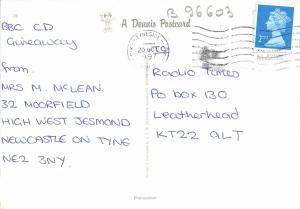 B 96603
A Dennis Postcard
BBC CD
Giveaway
from:
MRS M. McLEAN
32 MOORFIELD
HIGH WEST JESMOND
NEWCASTLE ON TYNE
NE2 3NY.
TYNESIDE
1997
2ND
TO
Radio Times
PO BOX 130
Leatherhead
KT22 9LT